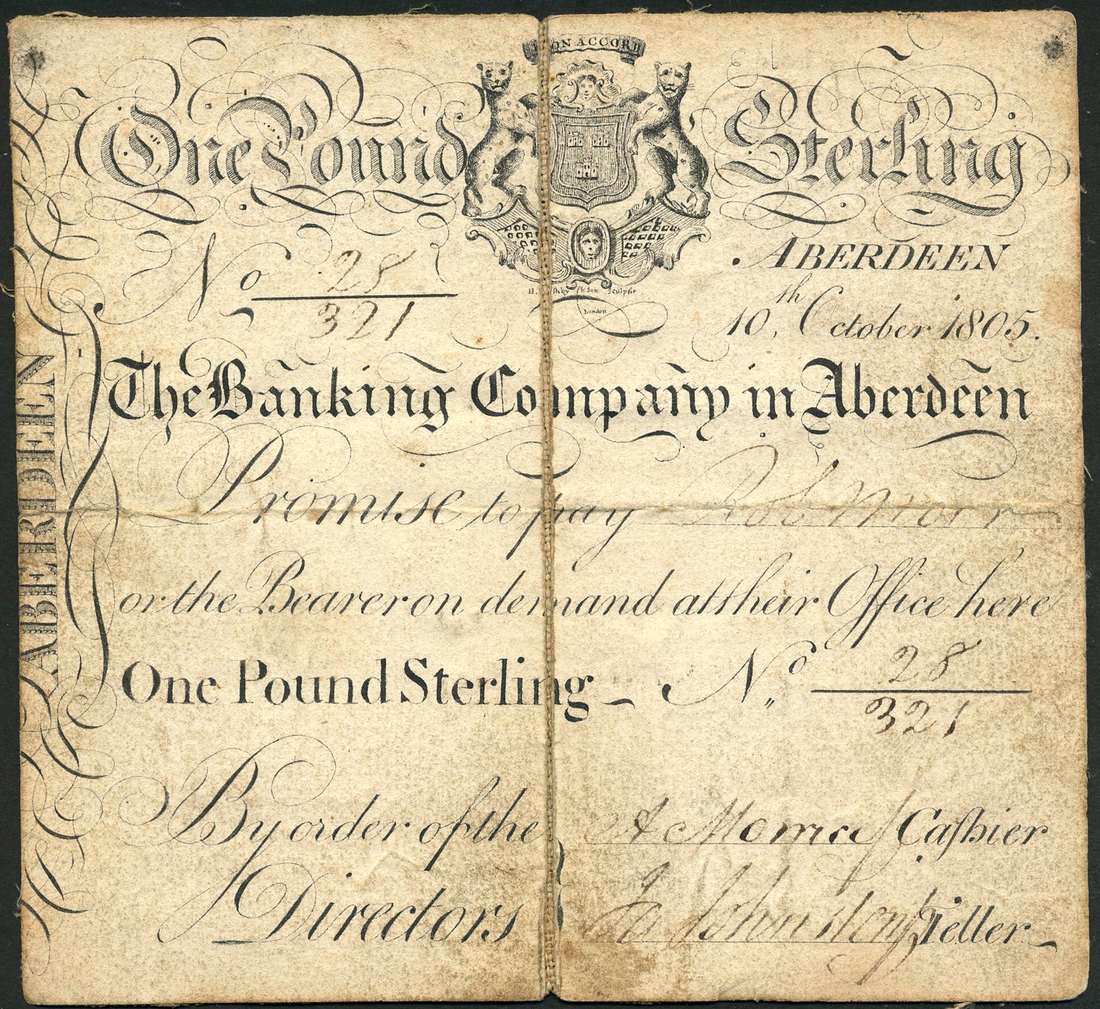 BON ACCORD
One Pound Sterling
No 28
321
ABERDEEN
10,th October 1805.
The Banking Company in Aberdeen
Promise to pay Rob Morr
or the Bearer on demand at their Office here
One Pound Sterling No 28
321
By order of the
Directors
Caſhier
Jo Johnston Teller
Sculpsit
London
ABERDEEN